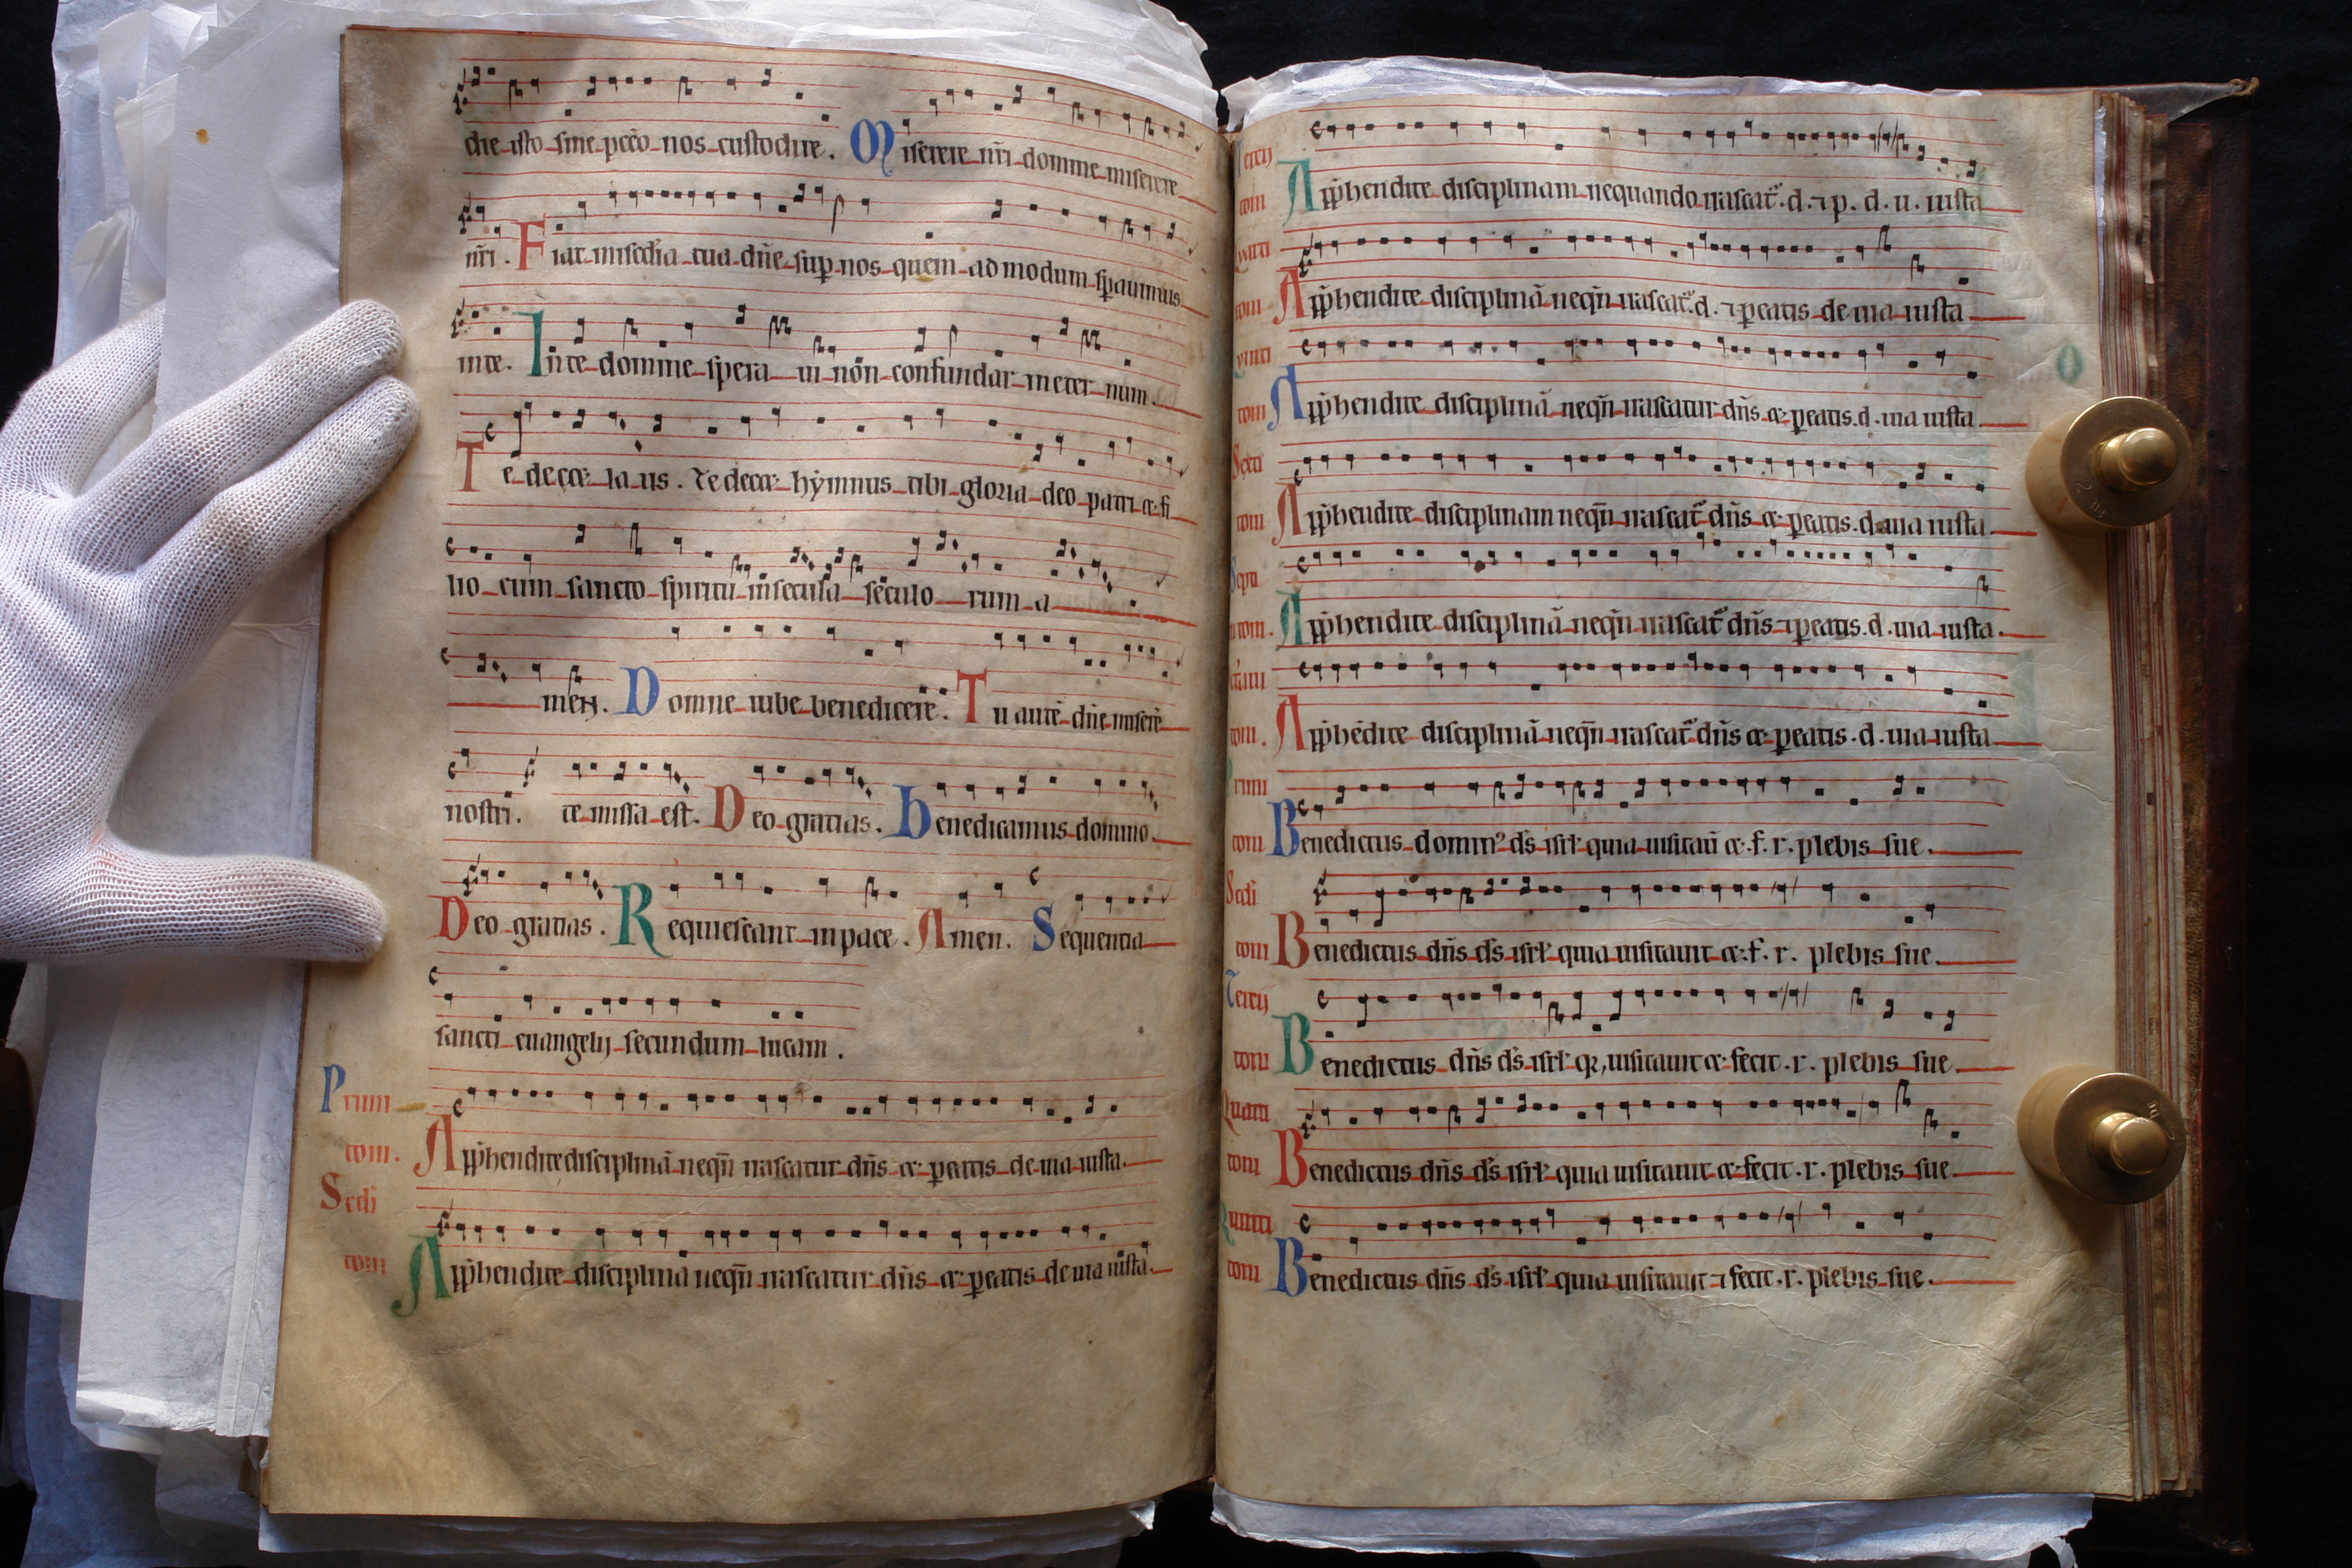 die isto sine pccō nos custodire. Miserere nr̄i domine miserere
nr̄i. Fiat misedia tua dn̄e sup nos quem ad modum spauimus
inte. In te domine spera ui non confundar in eter num.
Te decet la us. Te decet hẏmnus tibi gloria deo patri et fi
lio cum sancto spiritu in secula seculo rum a
men. Domne iube benedicere. Tu autē dn̄e miserē
nostri. te missa est. Deo gratias. Benedicamus domino.
Deo gratias. Requiescant inpace. Amen. Sequentia
sancti euangelij secundum lucam.
Primi
toni. Appħendite disciplinā neqn̄ irascatur dn̄s et peatis de uia iusta.
Scdi
toni Appħendite disciplinā neqn̄ irascatur dn̄s et peatis de uia iusta.
Tercij
toni Appħendite disciplinam nequando irascat᷑. d. ⁊ p. d. u. iusta
Quarti
toni Appħendite disciplinā neqn̄ irascat᷑. d. ⁊ peatis de uia iusta
Quinti
toni Appħendite disciplinā neqn̄ irascatur dn̄s et peatis. d. uia iusta.
Sexti
toni Appħendite disciplinam neqn̄ irascat᷑ dn̄s et peatis. d. uia iusta
Septi
toni. Appħendite disciplinā neqn̄ irascat᷑ dn̄s ⁊ peatis. d. uia iusta.
toni. Appħēdite disciplinā neqn̄ irascat᷑ dn̄s et peatis. d. uia iusta
Primi
toni Benedictus domin᷒ ds̄ isrł quia uisitaū et. f. r. plebis sue.
Scdi
toni Benedictus dn̄s ds̄ isrł quia uisitauit et. f. r. plebis sue.
Tercij
toni Benedictus dn̄s ds̄ isrł qr, uisitauit et fecit. r. plebis sue
Quarti
toni Benedictus dn̄s ds̄ isrł quia uisitauit et fecit. r. plebis sue
Quinti
toni Benedictus dn̄s ds̄ isrł quia uisitauit ⁊ fecit. r. plebis sue.